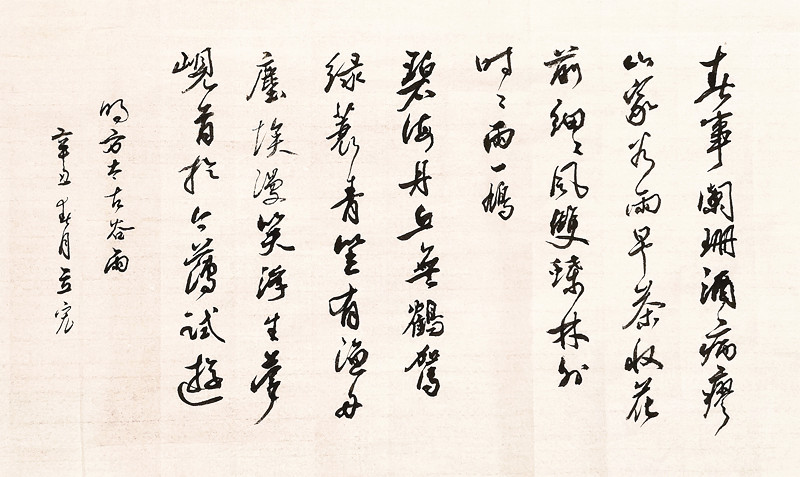 春事闌珊酒病瘳
山家谷雨早茶收花
前細〻風雙蝶林外
時〻雨一鳩
碧海丹丘無鶴駕
綠蓑青笠有漁舟
塵埃漫笑浮生夢
峴首於今薄試遊
明方太古谷雨
辛丑春月